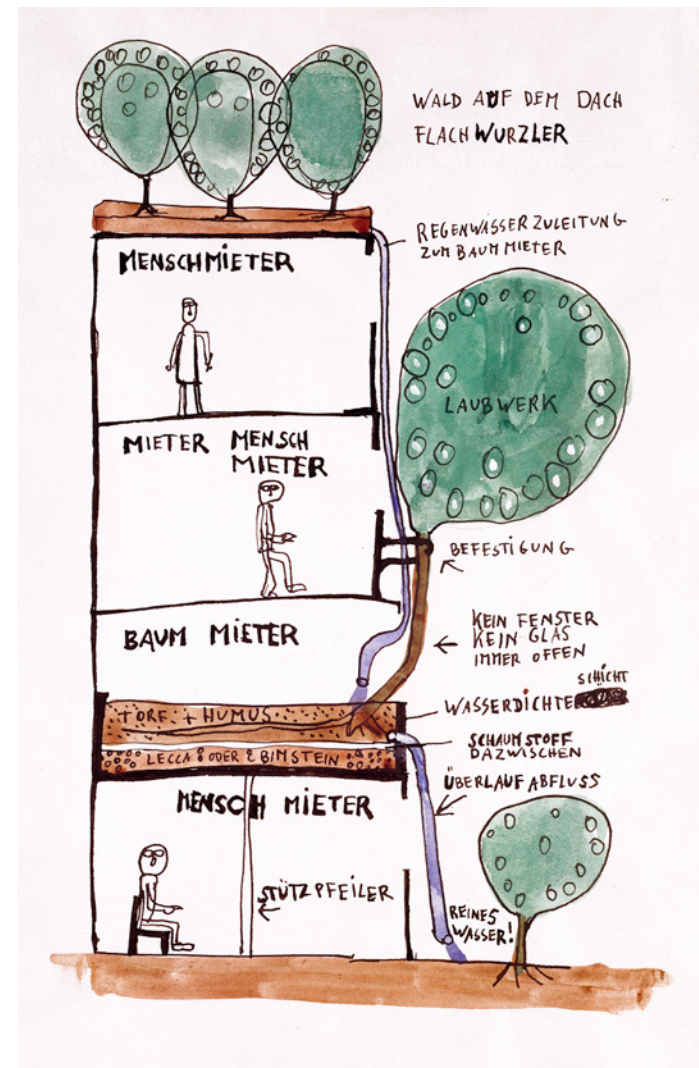 WALD AUF DEM DACH
FLACHWURZLER
REGENWASSERZULEITUNG
ZUM BAUMMIETER
MENSCHMIETER
LAUBWERK
MIETER MENSCH
MIETER
BEFESTIGUNG
KEIN FENSTER
KEIN GLAS
IMMER OFFEN
BAUM MIETER
SCHICHT
WASSERDICHTE
TORF + HUMUS
SCHAUMSTOFF
DAZWISCHEN
LECCA ODER BIMSTEIN
ÜBERLAUFABFLUSS
MENSCH MIETER
STÜTZPFEILER
REINES
WASSER!